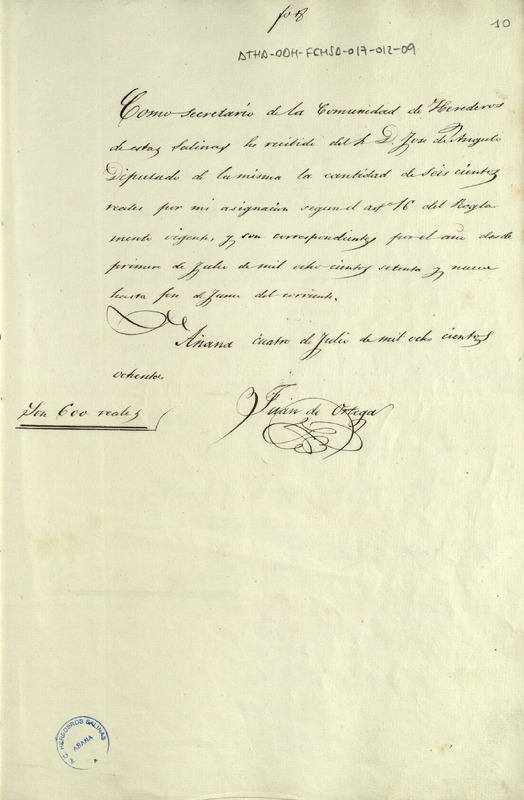 10
ATHA-DDH-FCHSA-017-012-09
Como secretario de la Comunidad de Herederos
de estas Salinas he recibido del Sr D. Jose de Angulo
Diputado de la misma la cantidad de seis cientos
reales por mi asignacion segun el artº 16 del Regla
mento vigente, y son correspondientes por el año desde
primero de Julio de mil ocho cientos setenta y nueve
hasta fin de Junio del corriente.
Añana cuatro de Julio de mil ocho cientos
ochenta.
Son 600 reales
Juan de Ortega
C. HEREDEROS SALINAS
AÑANA